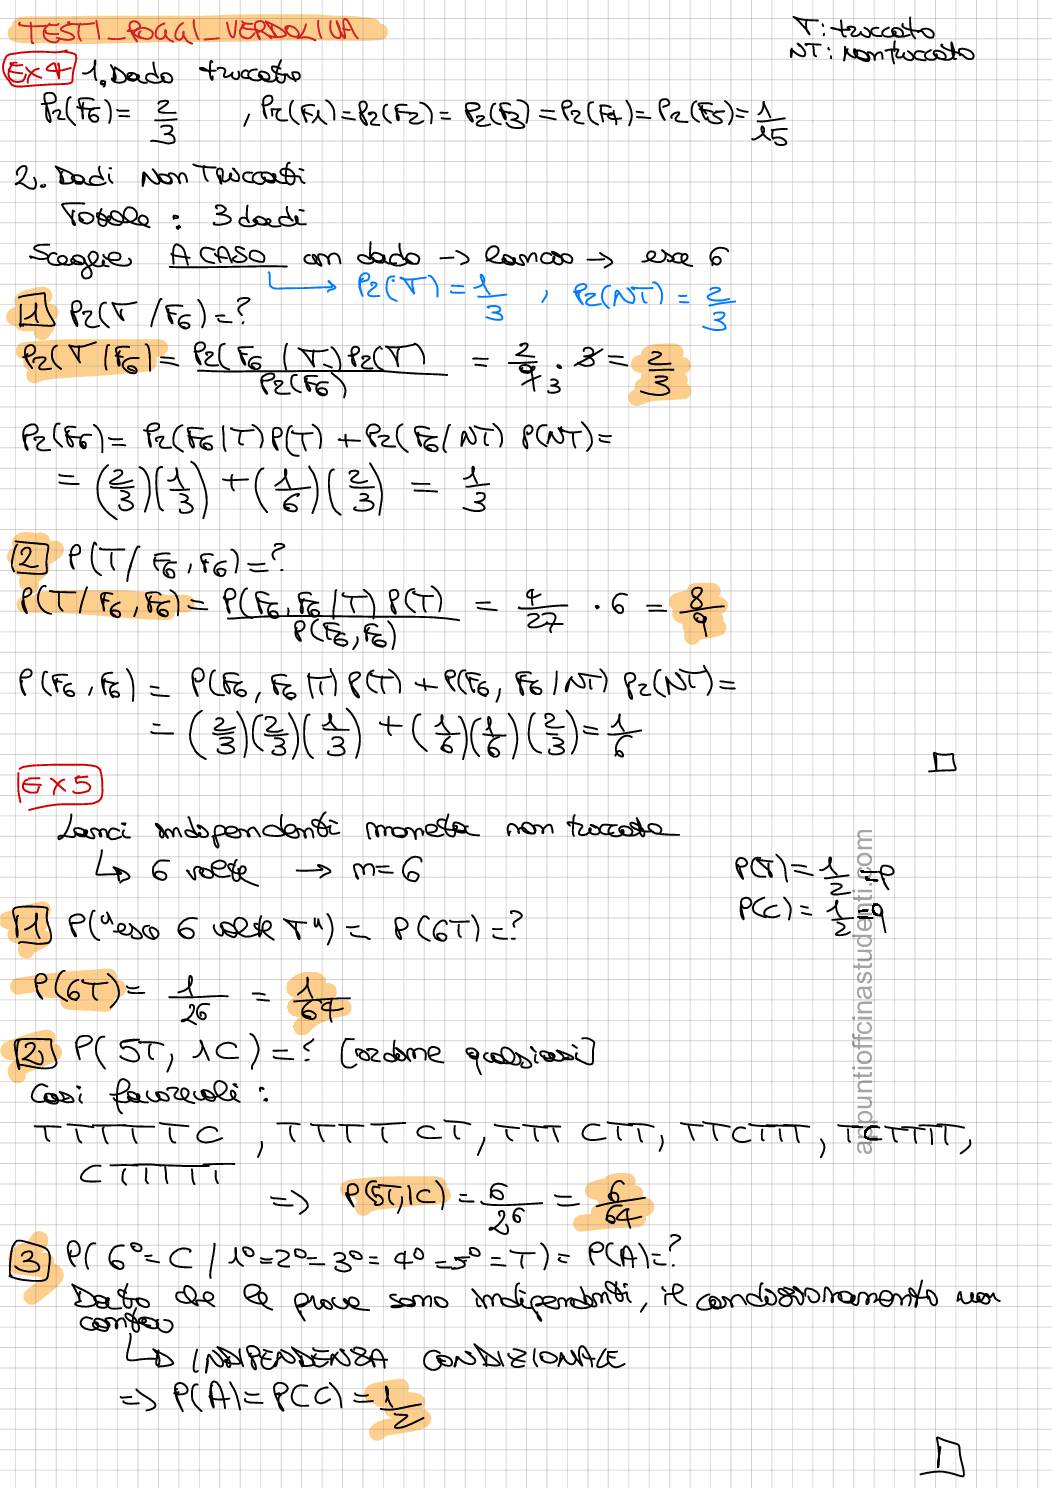 TESTI_POGGI_VERDOLIVA
T: truccato
NT: Non truccato
Ex4 1. Dado truccato
Pr(F6) = 2/3 , Pr(F1) = Pr(F2) = Pr(F3) = Pr(F4) = Pr(F5) = 1/15
2. Dadi Non Truccati
Totale : 3 dadi
Sceglie A CASO un dado → lancio → esce 6
↳ Pr(T) = 1/3 , Pr(NT) = 2/3
1 Pr(T/F6) = ?
Pr(T/F6) = Pr(F6/T) Pr(T) / Pr(F6) = 2/9 3 · 3 = 2/3
Pr(F6) = Pr(F6|T) P(T) + Pr(F6/NT) P(NT) =
= (2/3)(1/3) + (1/6)(2/3) = 1/3
2 P(T/F6,F6) = ?
P(T/F6,F6) = P(F6,F6/T) P(T) / P(F6,F6) = 4/27 · 6 = 8/9
P(F6,F6) = P(F6,F6|T) P(T) + P(F6,F6/NT) Pr(NT) =
= (2/3)(2/3)(1/3) + (1/6)(1/6)(2/3) = 1/6
EX5
Lanci indipendenti moneta non truccata
↳ 6 volte → m=6
P(T) = 1/2 = p
P(C) = 1/2 = q
1 P("esce 6 volte T") = P(6T) = ?
P(6T) = 1/2⁶ = 1/64
2 P(5T, 1C) = ? [ordine qualsiasi]
Casi favorevoli :
TTTTTC , TTTTCT, TTTCTT, TTCTTT, TCTTTT,
CTTTTT
=> P(5T,1C) = 6/2⁶ = 6/64
3 P(6° = C / 1°=2°=3°=4°=5°=T) = P(A) = ?
Dato che le prove sono indipendenti, il condizionamento non
conta
↳ INDIPENDENZA CONDIZIONALE
=> P(A) = P(C) = 1/2
appuntiofficinastudenti.com